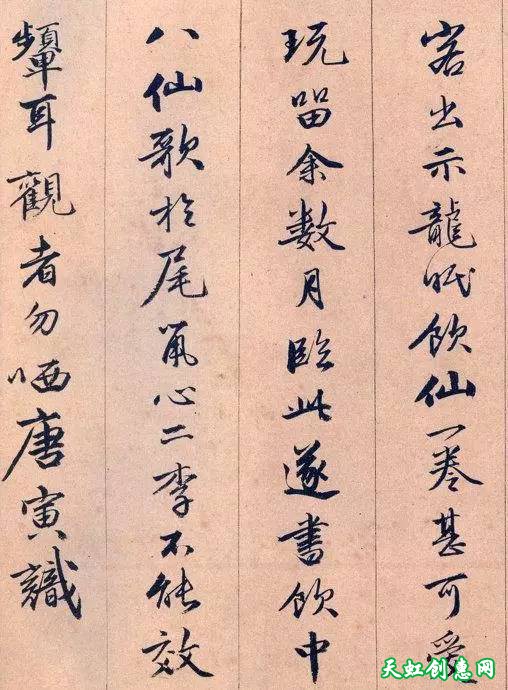 出示龍眠飲仙一卷甚可愛
玩留余數月臨此遂書飲中
八仙歌於尾心二李不能效
顰耳觀者勿哂唐寅識
天虹创惠网